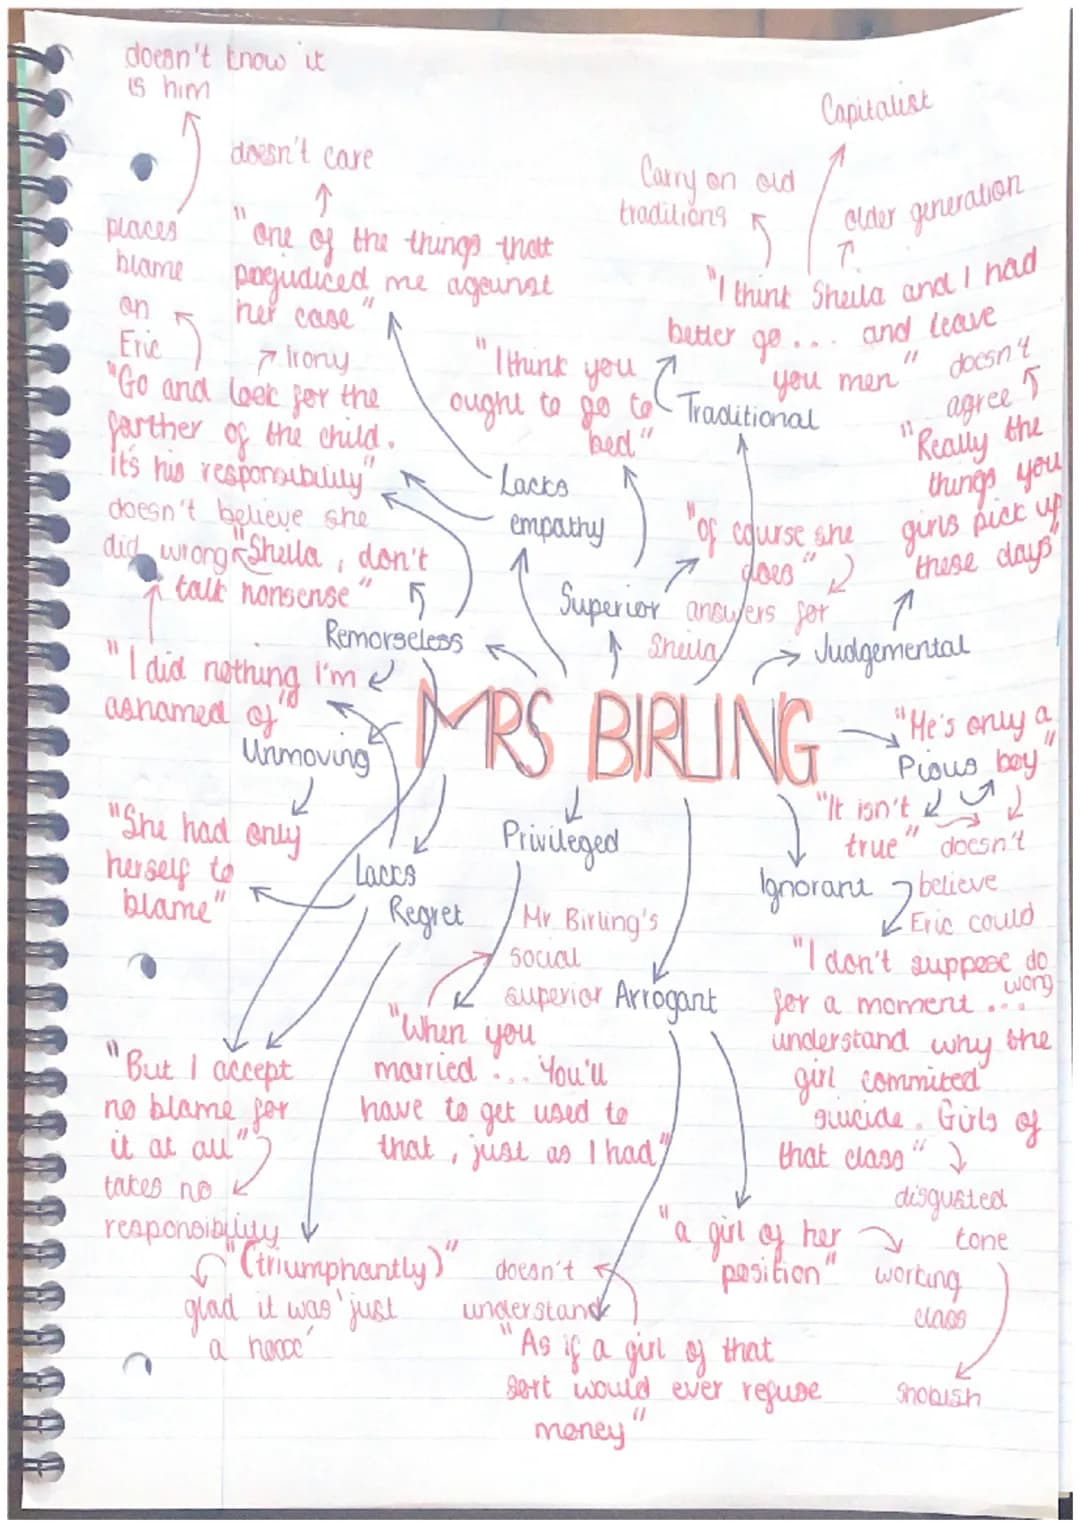 doesn't know it
is him
doesn't care
places
blame
on
Eric
"one of the things that
perjudiced me against
her case"
irony
"Go and look for the
farther of the child.
it's his responsibility"
doesn't believe she
did wrong
"Sheila, don't
talk nonsense"
"I think you
ought to go to
bed"
Lacks
empathy
Capitalist
Carry on old
traditions
older generation
"I think Sheila and I had
better go... and leave
you men"
Traditional
doesn't
agree
"Really the
things you
girls pick up
these days"
"of course she
does"
answers for
Sheila
Superior
Judgemental
Remorseless
"I did nothing I'm
ashamed of"
Unmoving
MRS BIRLING
"He's only a
boy"
Pious
"It isn't
true"
doesn't
believe
Eric could
do
wrong
"She had only
herself to
blame"
Lacks
Regret
Privileged
Mr. Birling's
social
superior
Arrogant
Ignorant
"I don't suppose
for a moment...
understand why the
girl commited
suicide. Girls of
that class"
disgusted
tone
snobish
"When you
married... You'll
have to get used to
that, just as I had"
"But I accept
no blame for
it at all"
takes no
responsibility
"(triumphantly)"
glad it was 'just
a hoax'
"a girl of her
position"
working
class
doesn't
understand
"As if a girl of that
sort would ever refuse
money"